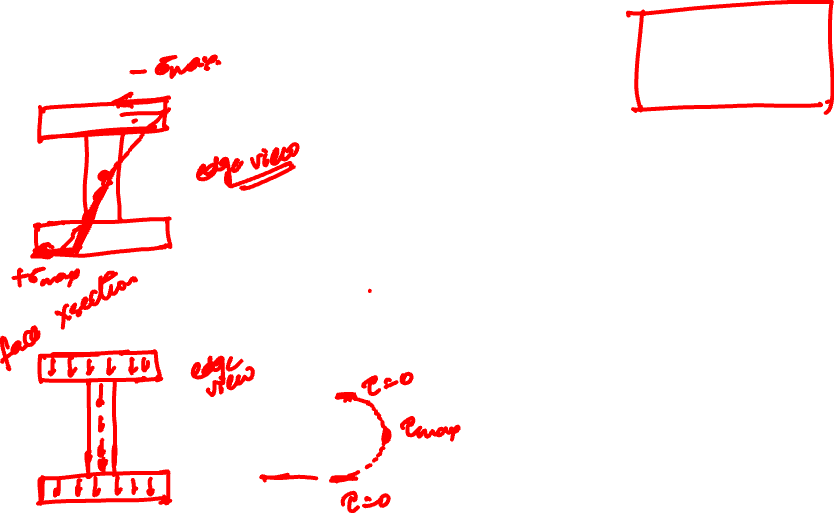 - σmax
edge view
+σmax
face xsection
edge
view
τ=0
τmax
τ=0